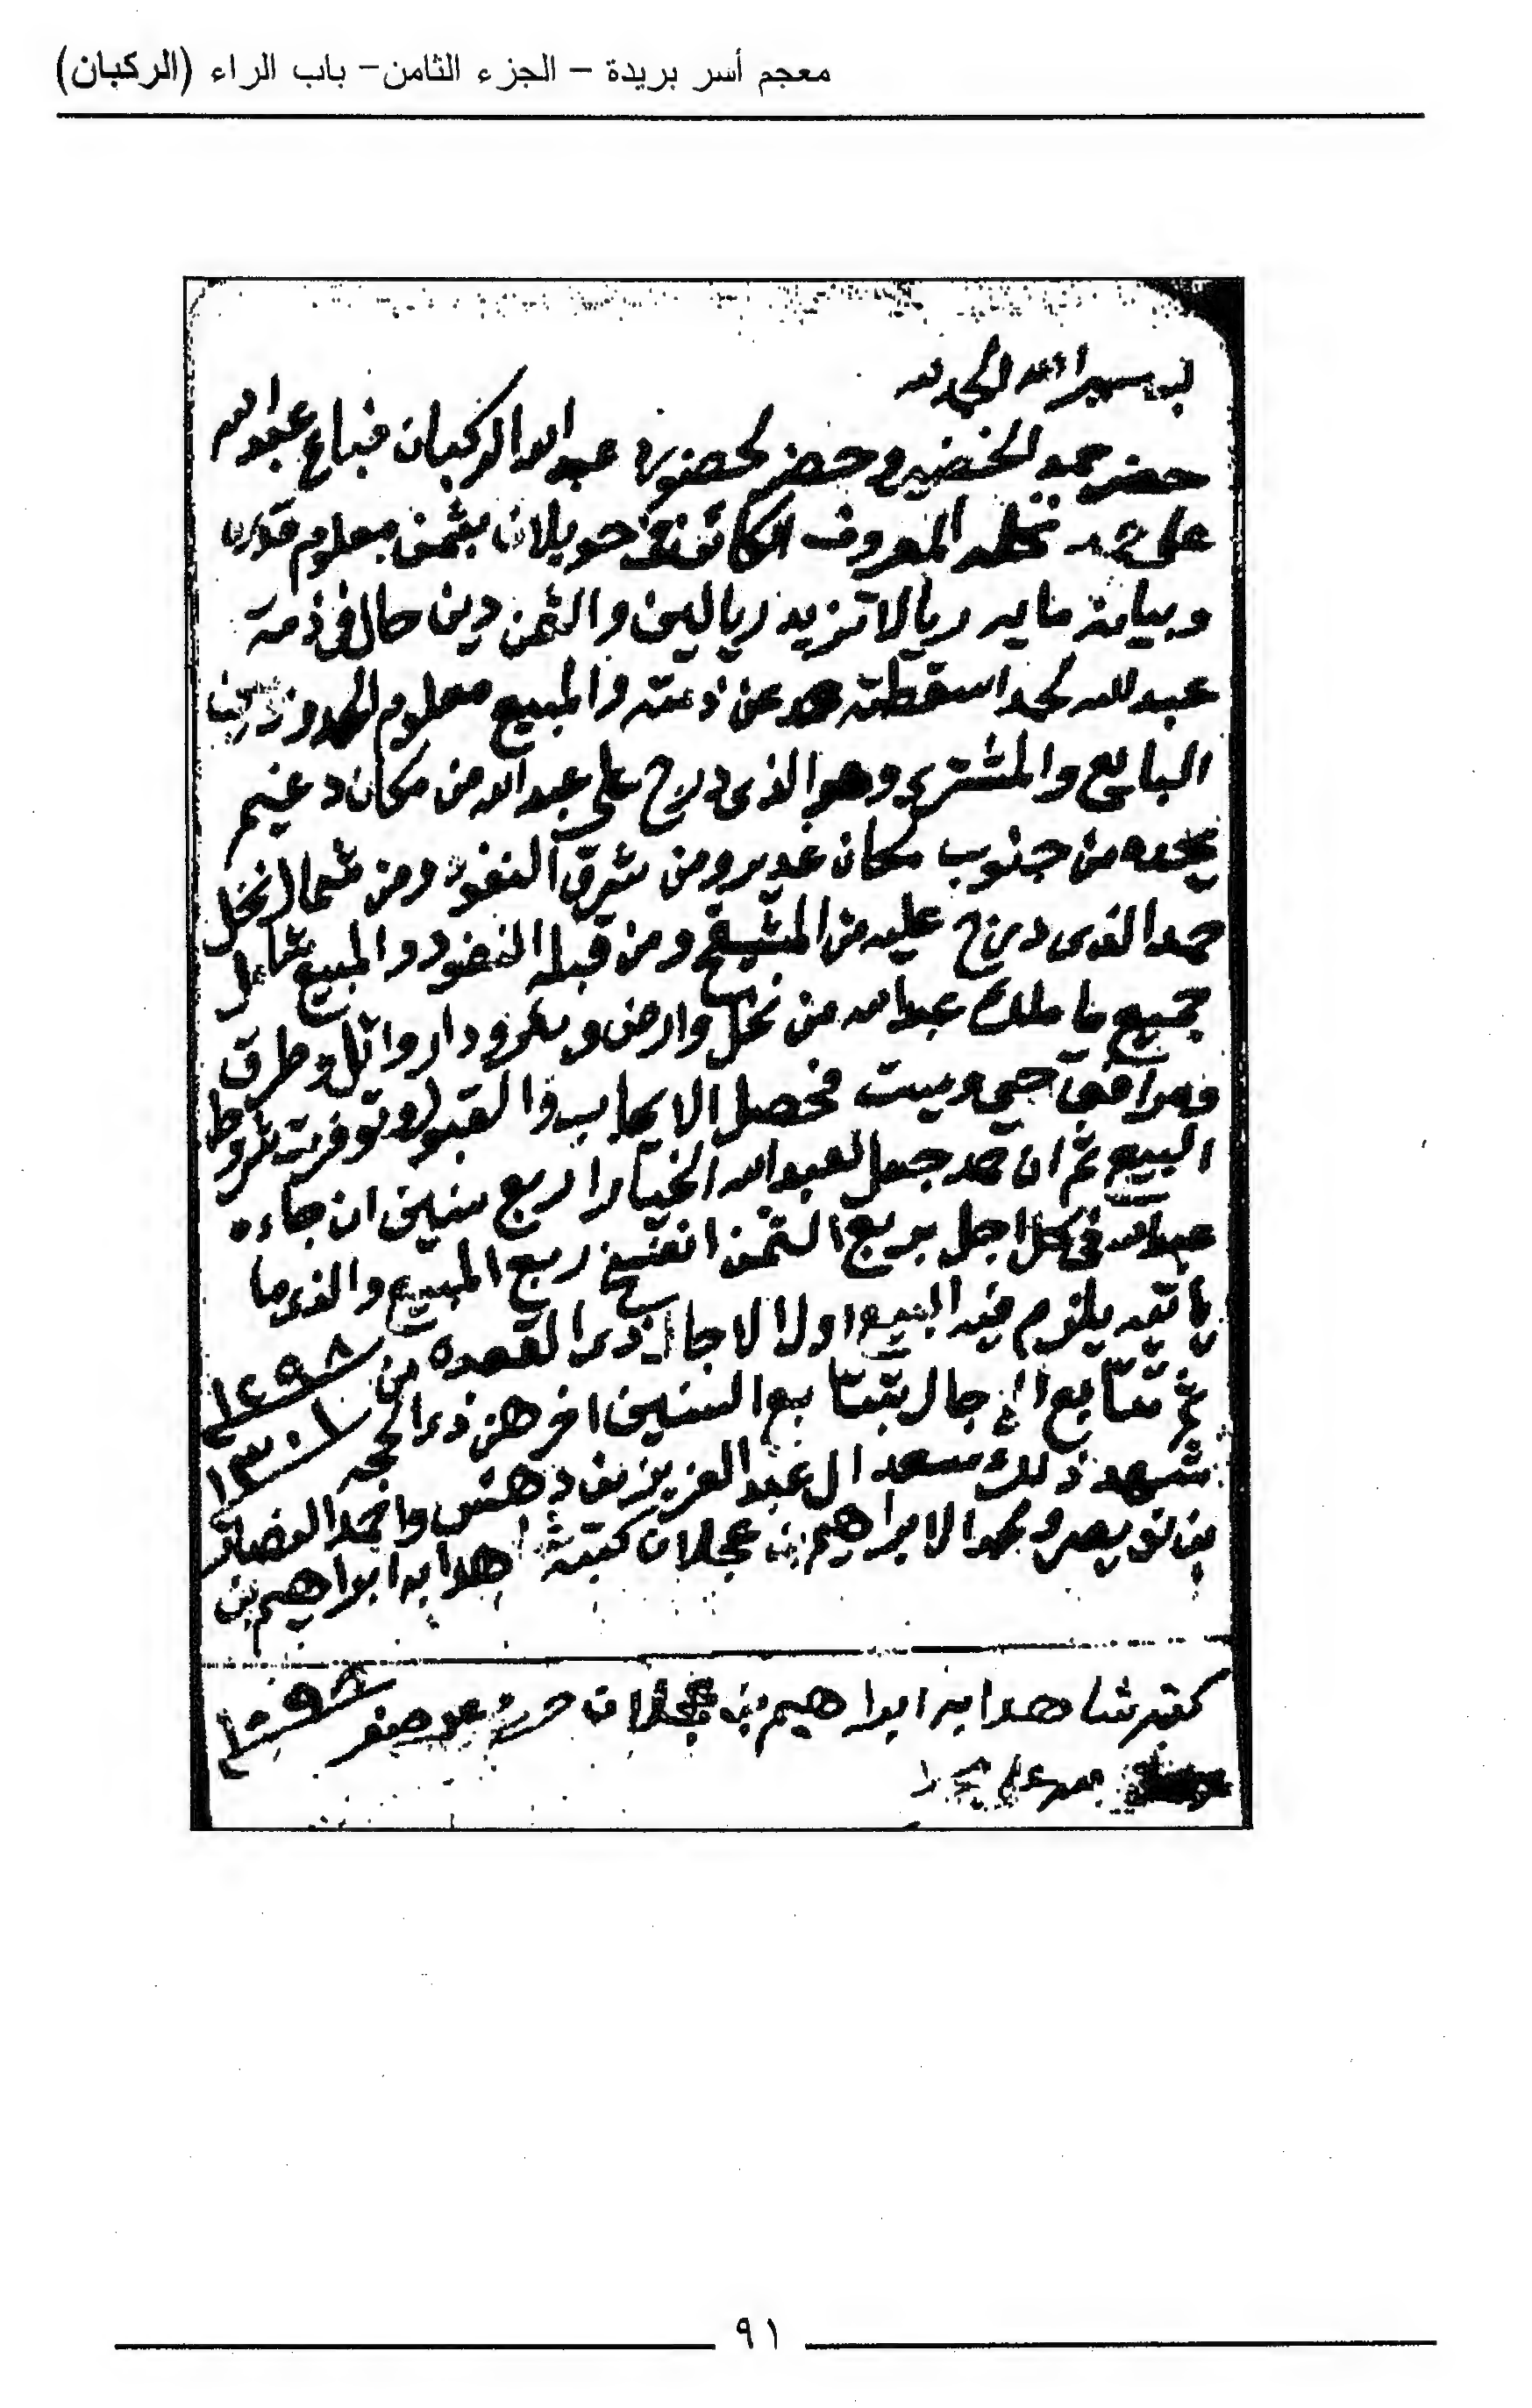 معجم أسر بريدة – الجزء الثامن– باب الراء (الركبان)
بسم الله الحمد لله
حضر حمد الخضير وحضر لحضوره عبد الله الركبان فباع عبد الله
على حمد نخله المعروف الكائن في حويلان بثمن معلوم قدره
وبيانه مايه ريالا تزيد ريالين والثمن دين حال في ذمة
عبد لله لحمد اسقطه حمد عن ذمته والمبيع معلوم الحدود بين
البايع والمشتري وهو الذي درج على عبد الله من مكان دغيم
يحده من جنوب مكان غدير ومن شرق النفود ومن شمال نخل
حمد الذي درج عليه من المشيقح ومن قبله النفود والمبيع شامل
جميع ما ملك عبد الله من نخل وارض وبئر ودار واثل وطرق
ومرافق حي وميت فحصل الايجاب والقبول وتوفرت شروط
البيع ثم ان حمد جعل لعبد الله الخيار اربع سنين ان جاءه
عبد الله في كل اجل بربع الثمن انفسخ ربع المبيع والذي ما
ياتيه يلزم فيه البيع اول الاجال ذي القعده من ١٢٩٨
ثم تتابع الاجال بتتابع السنين اخرهن ذي الحجه ١٣٠١
شهد ذلك سعد ال عبد العزيز بن دهش واحمد الناصر
بن نويصر ومحمد الابراهيم بن عجلان كتبه شاهدا به ابراهيم بن
كتبه شاهدا به ابراهيم بن عجلان حرر صفر ١٢٩٨
٩١